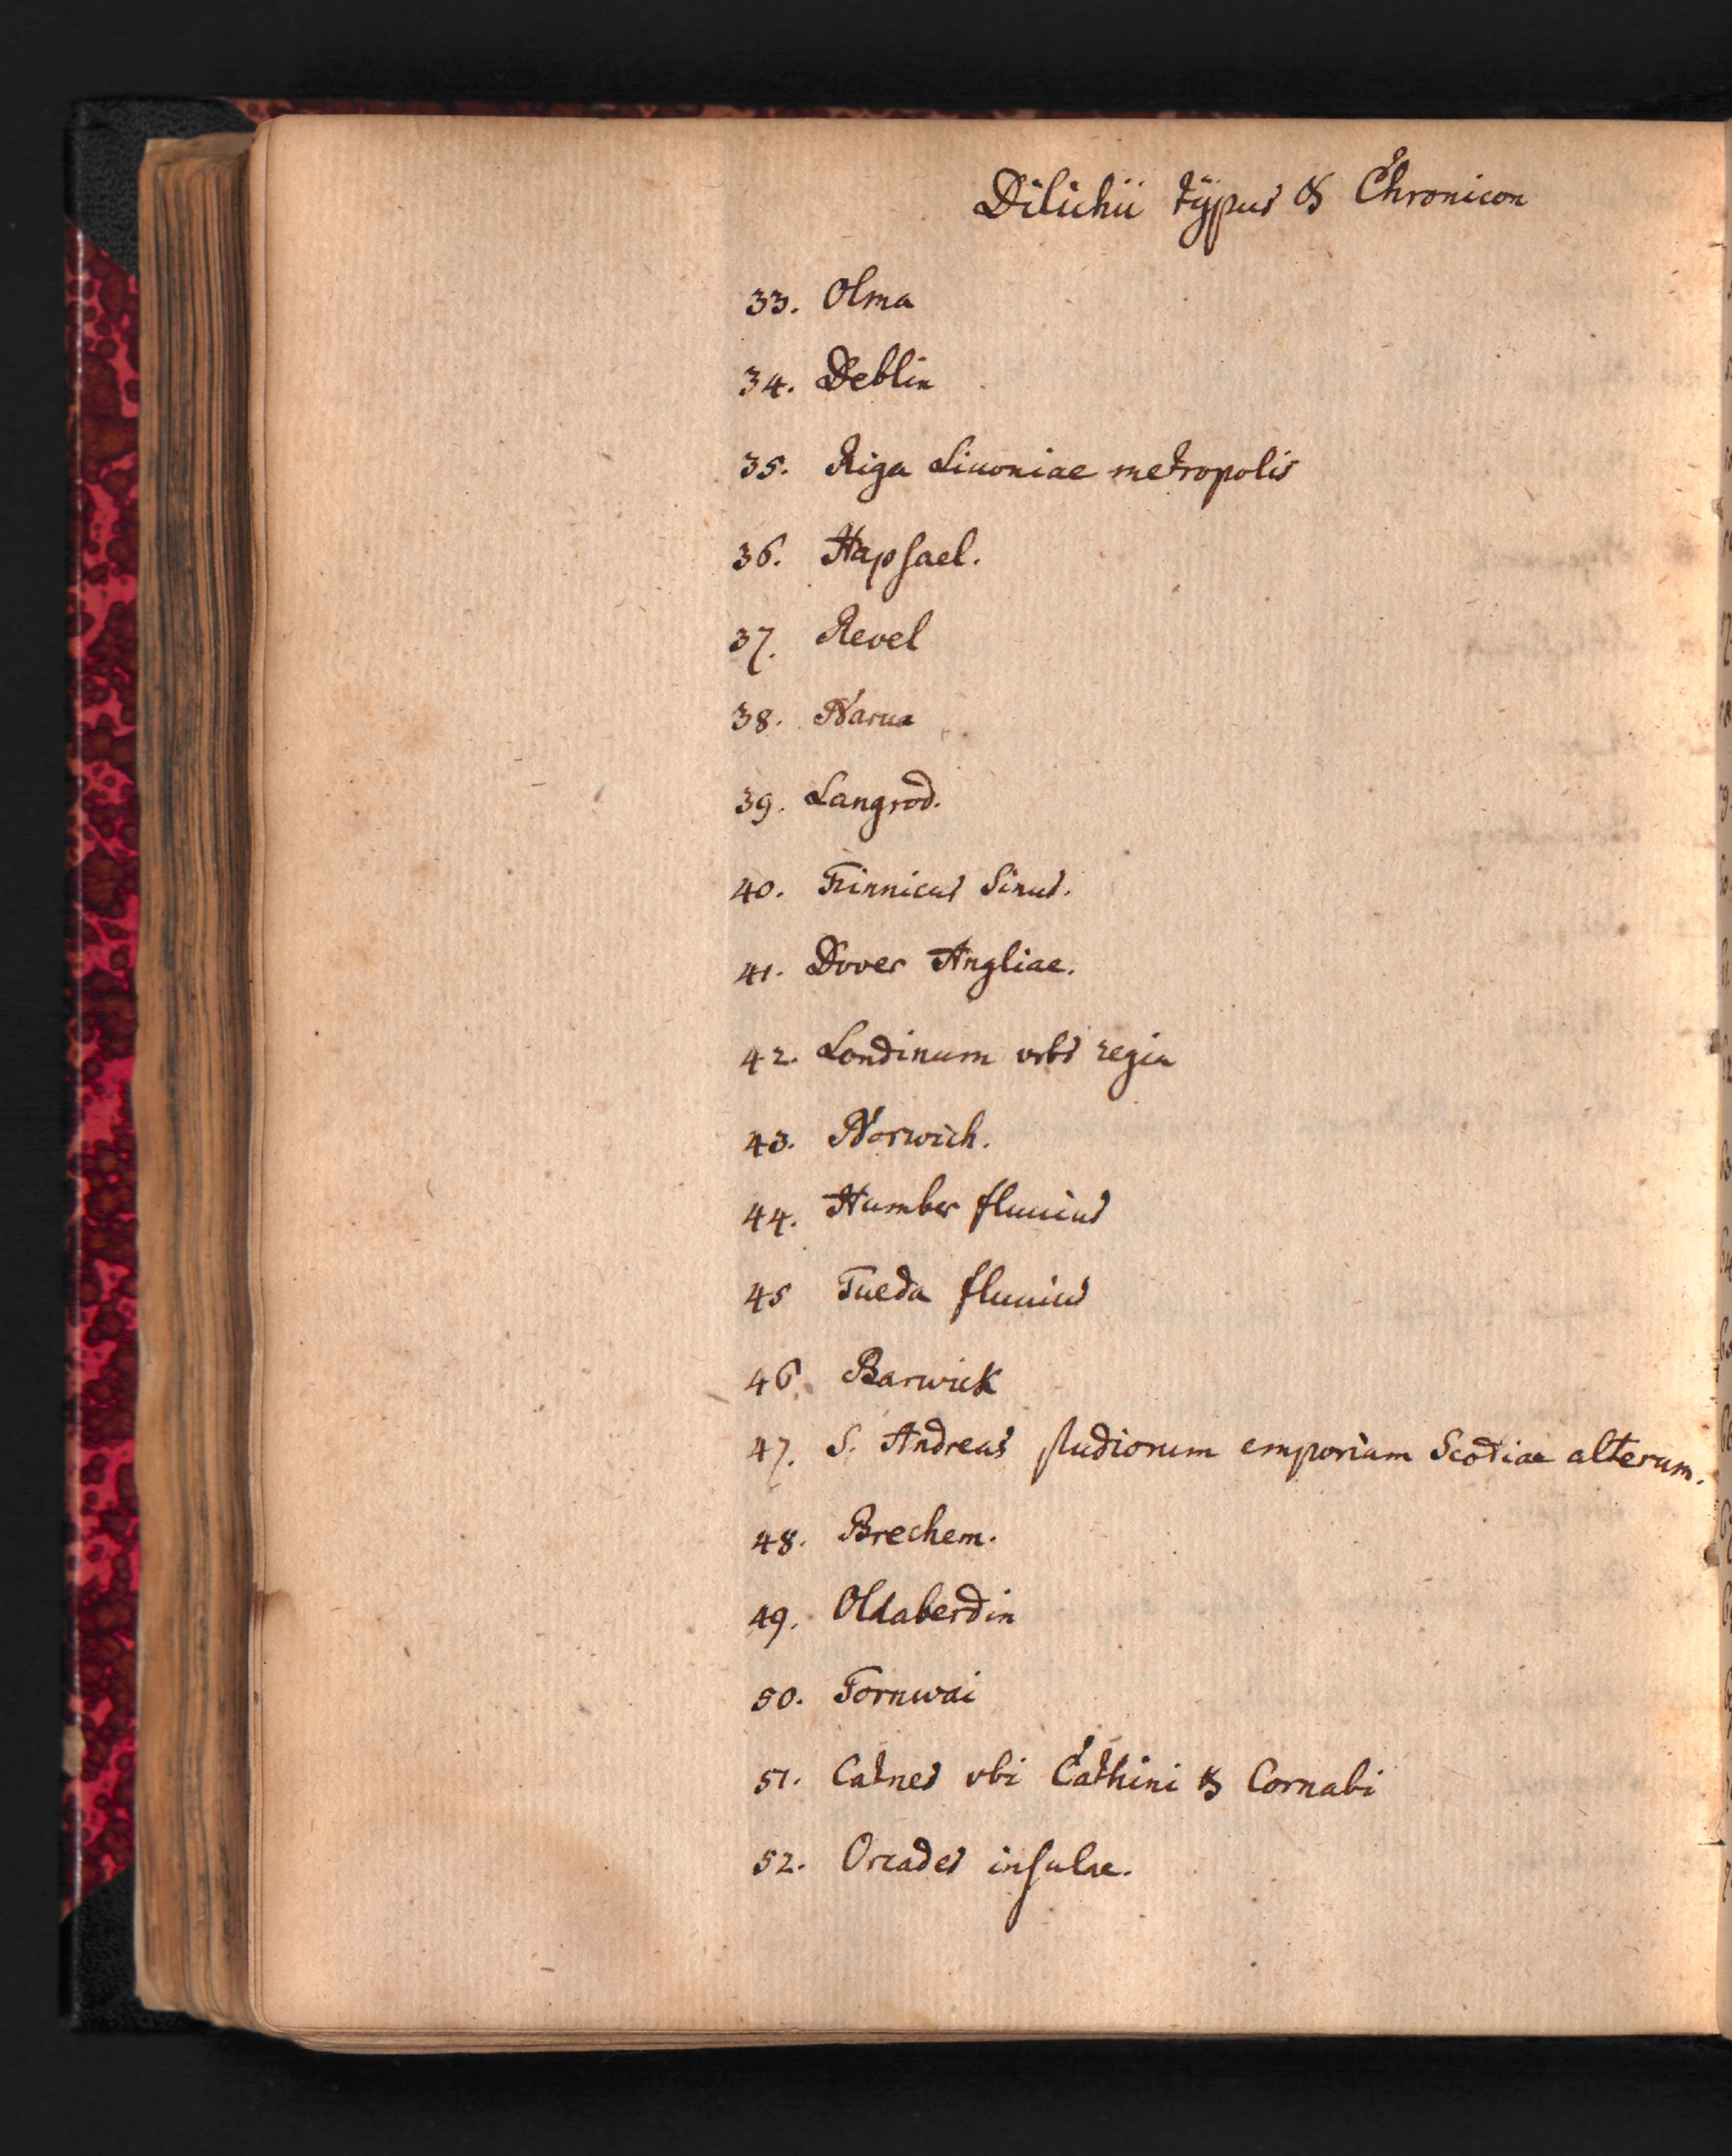 Dilichii tÿpus & Chronicon
33. Olma
34. Deblin
35. Riga Liuoniae metropolis
36. Hapsael.
37. Revel
38. Narua
39. Langrod.
40. Finnicus Sinus.
41. Dover Angliae.
42. Londinum vrbs regia
43. Norwich.
44. Humber fluuius
45 Tueda fluuius
46. Barwick
47. S. Andreas studiorum emporium Scotiae alterum.
48. Brechem.
49. Oldaberdin
50. Tornwai
51. Catnes vbi Cathini & Cornabi
52. Orcades insulae.